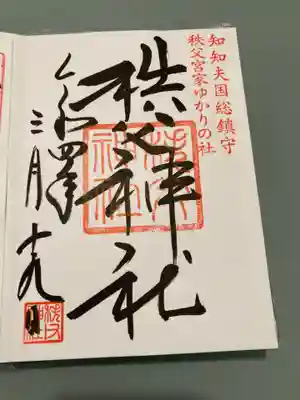 知知夫国総鎮守
秩父宮家ゆかりの社
秩父神社
令和四年
三月十九日
秩父神社